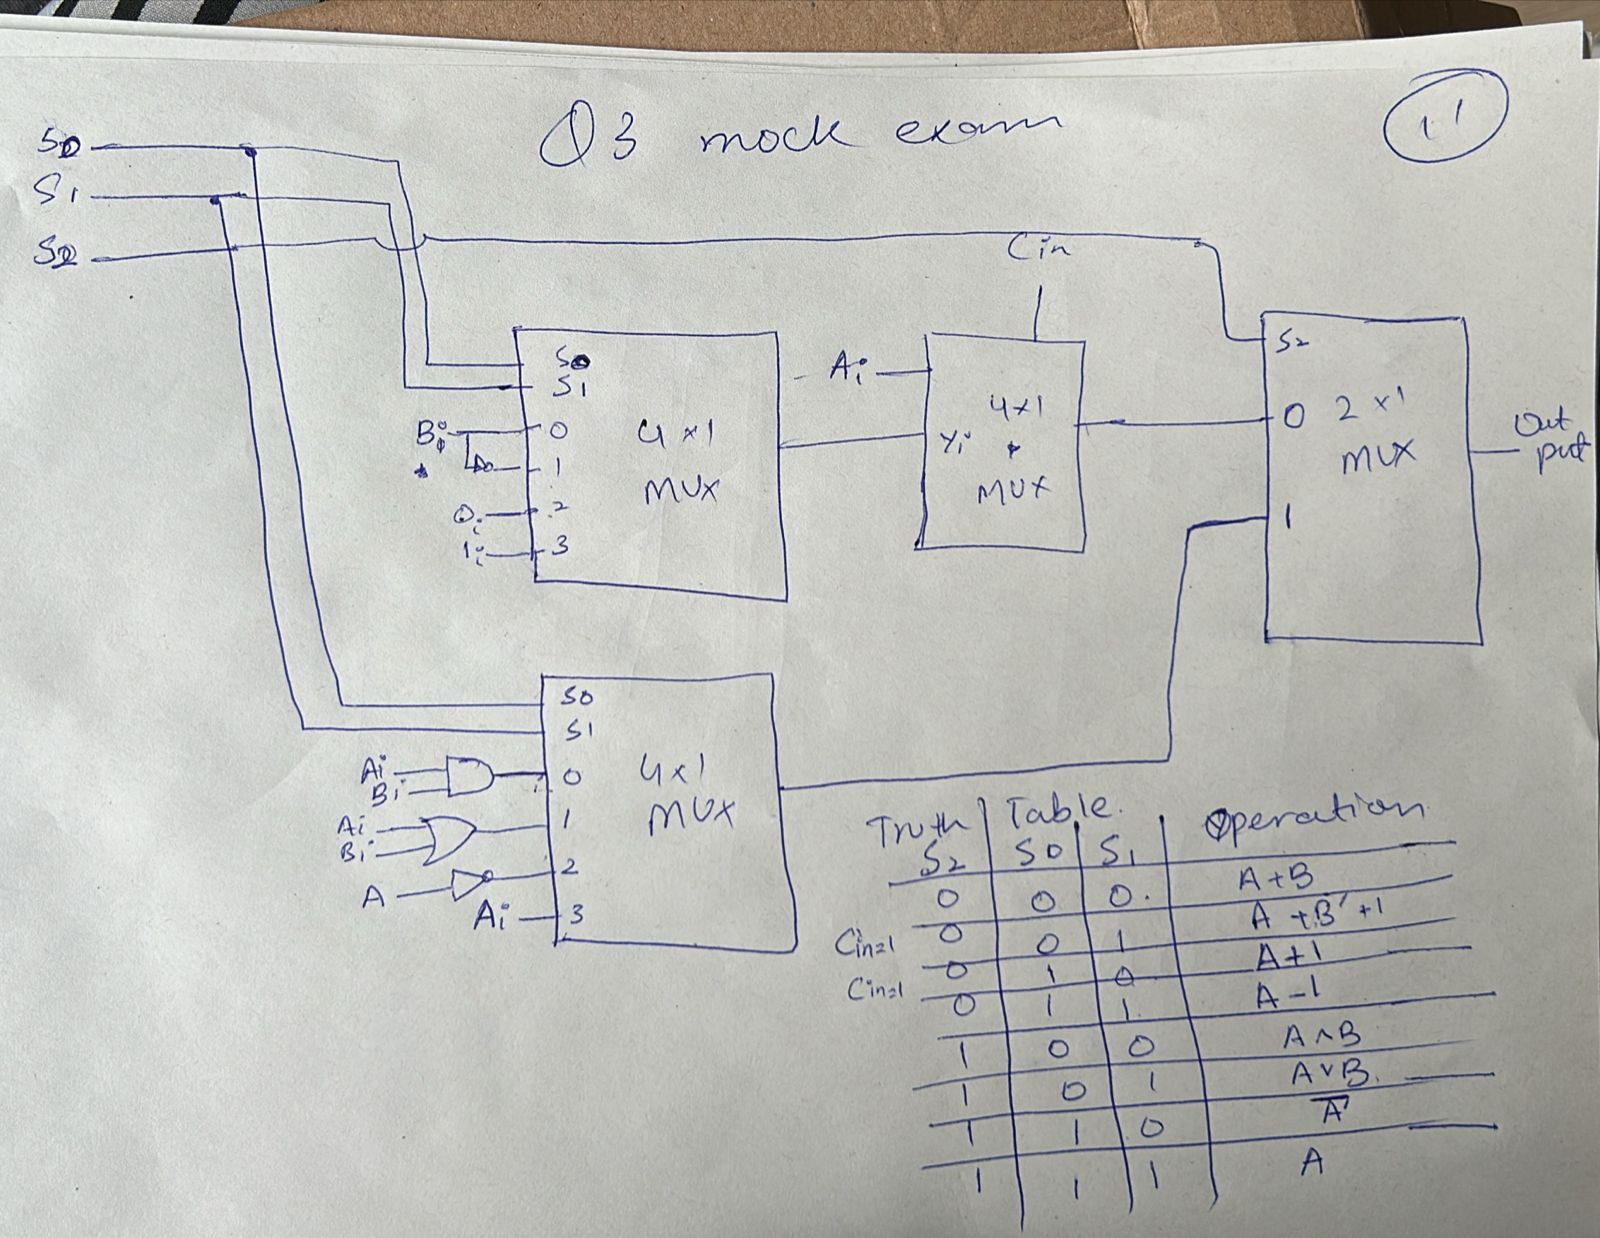 Q3 mock exam
11
S0
S1
S2
Cin
S0
S1
Bi
0
1
0i
2
1i
3
4x1
MUX
Ai
Yi
4x1
MUX
S2
0
1
2x1
MUX
Out
put
S0
S1
Ai
Bi
0
Ai
Bi
1
A
2
Ai
3
4x1
MUX
Truth Table. Operation
S2 S0 S1
0 0 0. A+B
Cin=1 0 0 1 A+B'+1
Cin=1 0 1 0 A+1
0 1 1 A-1
1 0 0 A∧B
1 0 1 A∨B.
1 1 0 A̅'
1 1 1 A